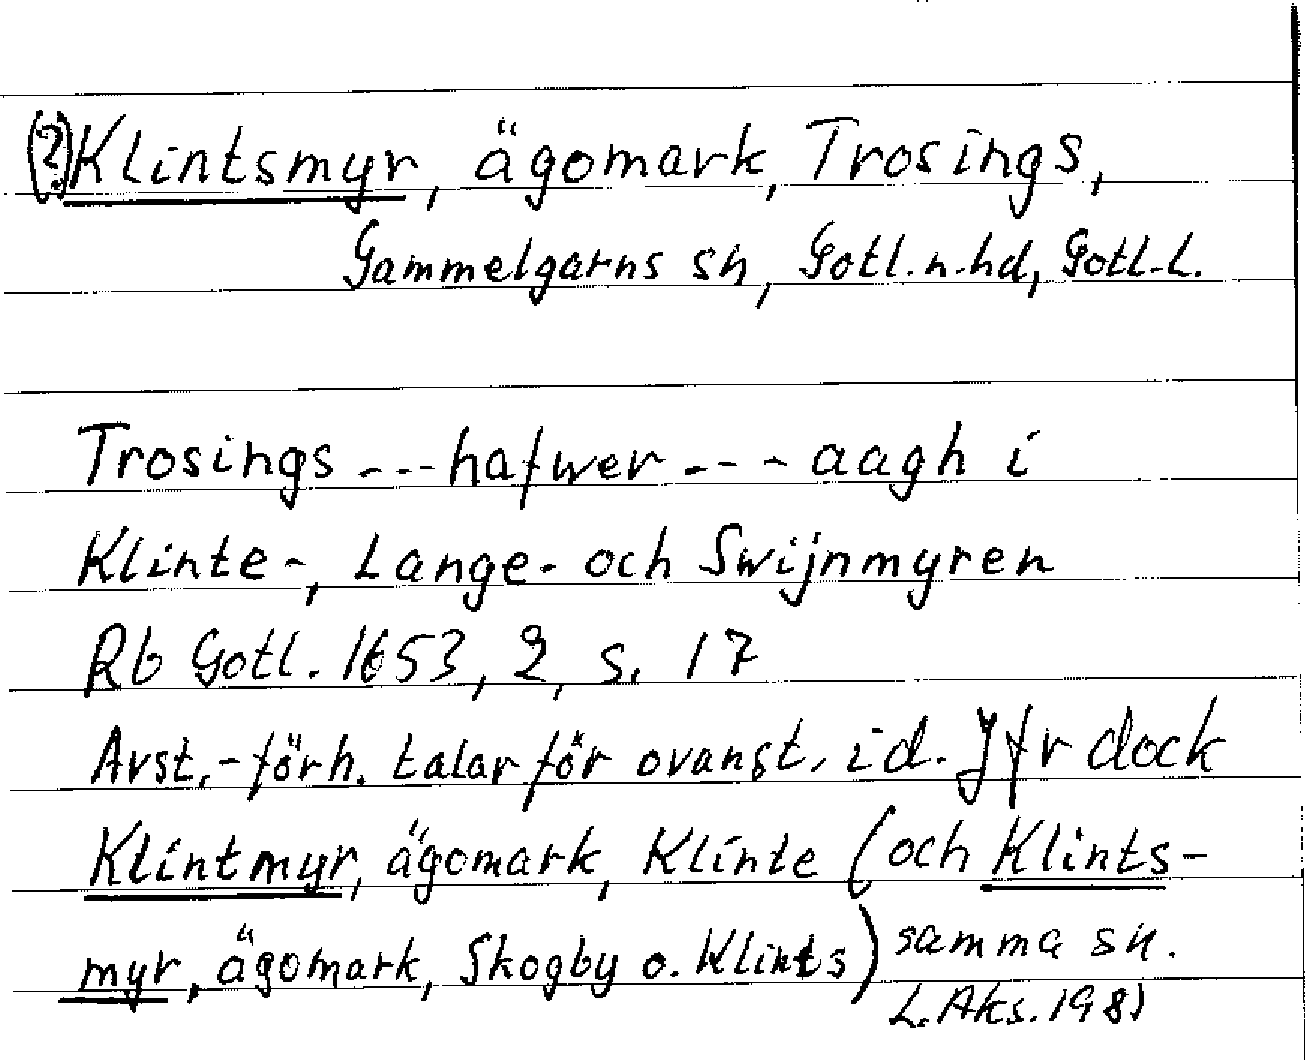 (?) Klintsmyr, ägomark, Trosings,
Gammelgarns sn, Gotl. n. hd, Gotl. L.
Trosings --- hafwer --- aagh i
Klinte-, Lange- och Swijnmyren
Rb Gotl. 1653, 2, s. 17
Avst.-förh. talar för ovanst. id. Jfr dock
Klintmyr, ägomark, Klinte (och Klints-
myr, ägomark, Skogby o. Klints) samma sn.
L. Aks. 1981